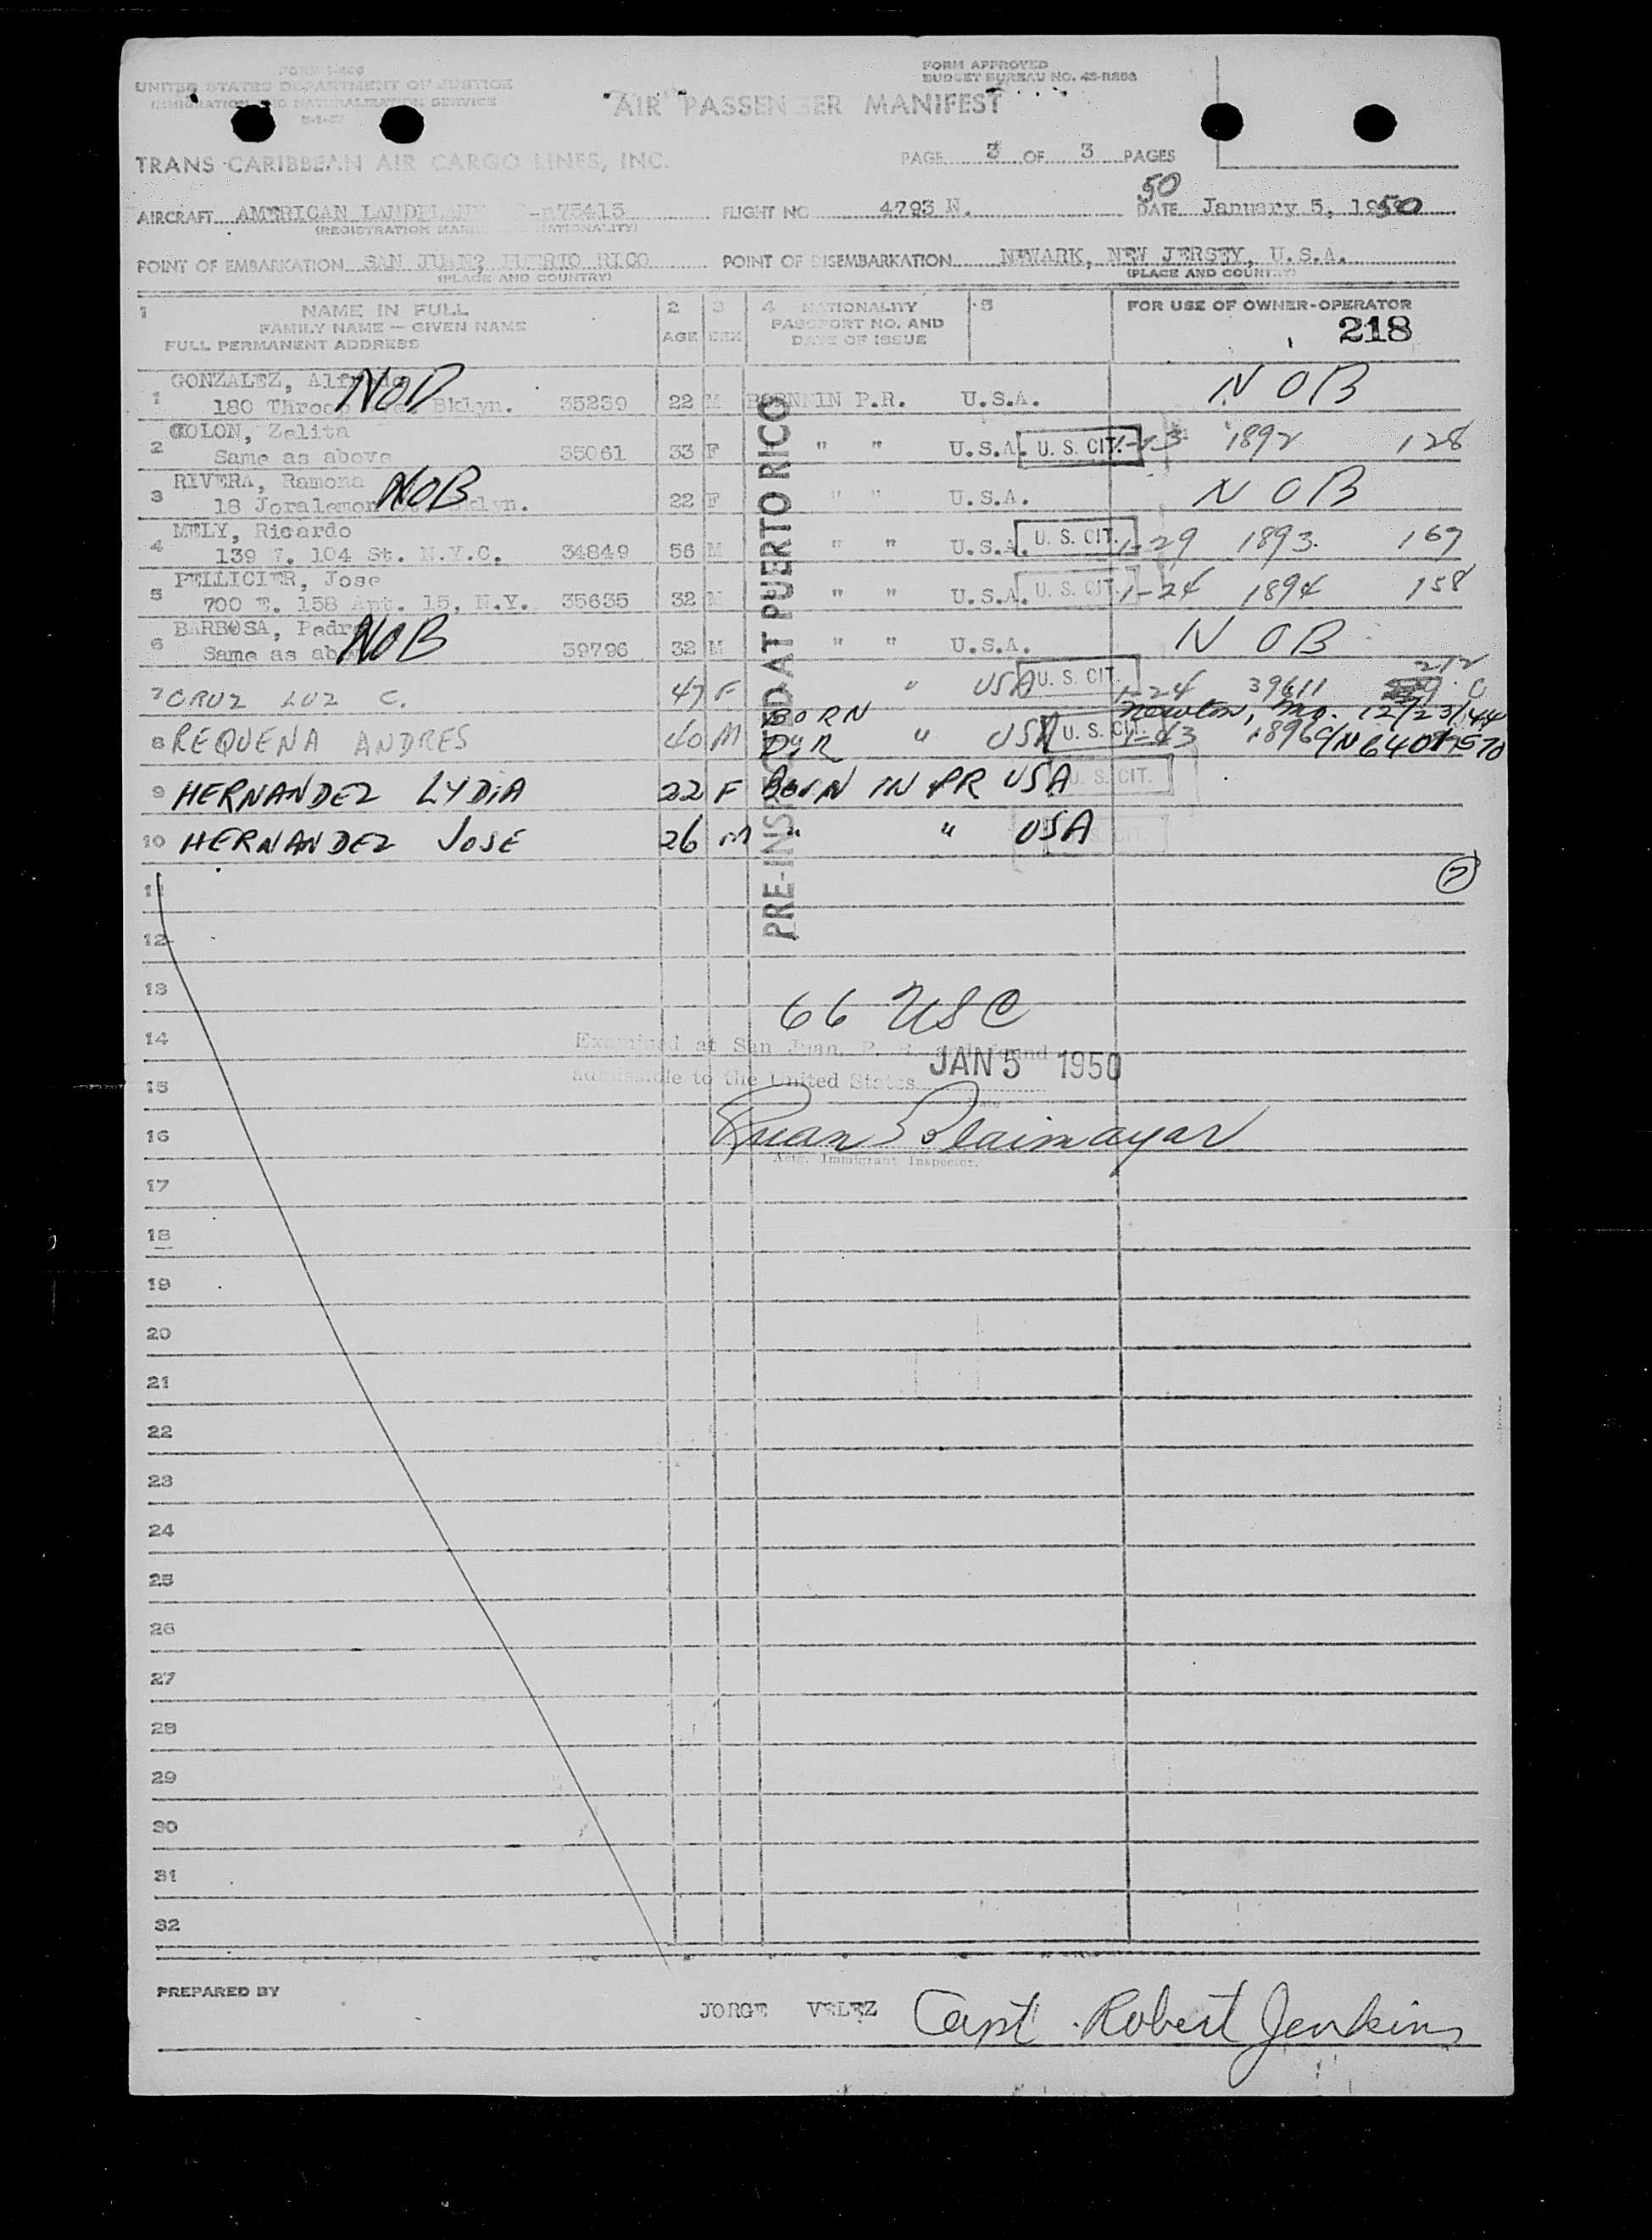 FORM I-466
UNITED STATES DEPARTMENT OF JUSTICE
IMMIGRATION AND NATURALIZATION SERVICE
FORM APPROVED
BUDGET BUREAU NO. 43-R253
AIR PASSENGER MANIFEST
TRANS CARIBBEAN AIR CARGO LINES, INC.
PAGE 3 OF 3 PAGES
50
AIRCRAFT AMERICAN LANDPLANE 75415 FLIGHT NO 4793 N. DATE January 5, 1950
(REGISTRATION MARKS AND NATIONALITY)
POINT OF EMBARKATION SAN JUAN, PUERTO RICO POINT OF DISEMBARKATION NEWARK, NEW JERSEY, U.S.A.
(PLACE AND COUNTRY) (PLACE AND COUNTRY)
1 NAME IN FULL 2 3 4 NATIONALITY 5 FOR USE OF OWNER-OPERATOR
FAMILY NAME — GIVEN NAME AGE SEX PASSPORT NO. AND 218
FULL PERMANENT ADDRESS DATE OF ISSUE
PRE-INSPECTED AT PUERTO RICO
1 GONZALEZ, Alfredo NOB
180 Throop Bklyn. 35239 22 M BORN IN P.R. U.S.A. NOB
2 COLON, Zelita
Same as above 35061 33 F " " U.S.A. U. S. CIT. 1892 128
3 RIVERA, Ramona NOB
18 Joralemon St. Bklyn. 22 F " " U.S.A. NOB
4 MELY, Ricardo
139 W. 104 St. N.Y.C. 34849 56 M " " U.S.A. U. S. CIT. 1-29 1893 167
5 PELLICIER, Jose
700 E. 158 Apt. 15, N.Y. 35635 32 M " " U.S.A. U. S. CIT. 1-24 1894 158
6 BARBOSA, Pedro NOB
Same as above 39796 32 M " " U.S.A. NOB
212
7 CRUZ LUZ C. 47 F " USA U. S. CIT. 1-24 39611
BORN Newton, 12/23/44
8 REQUENA ANDRES 40 M D.R " USA U. S. CIT. 1-43 1896
9 HERNANDEZ LYDIA 22 F BORN IN PR USA U. S. CIT.
10 HERNANDEZ JOSE 26 M " " USA U. S. CIT.
11 7
12
13
66 USC
14 Examined at San Juan, P. R. and found
15 admissible to the United States JAN 5 1950
Date
16
Actg. Immigrant Inspector.
17
18
19
20
21
22
23
24
25
26
27
28
29
30
31
32
PREPARED BY
JORGE VELEZ Capt. Robert Jenkins